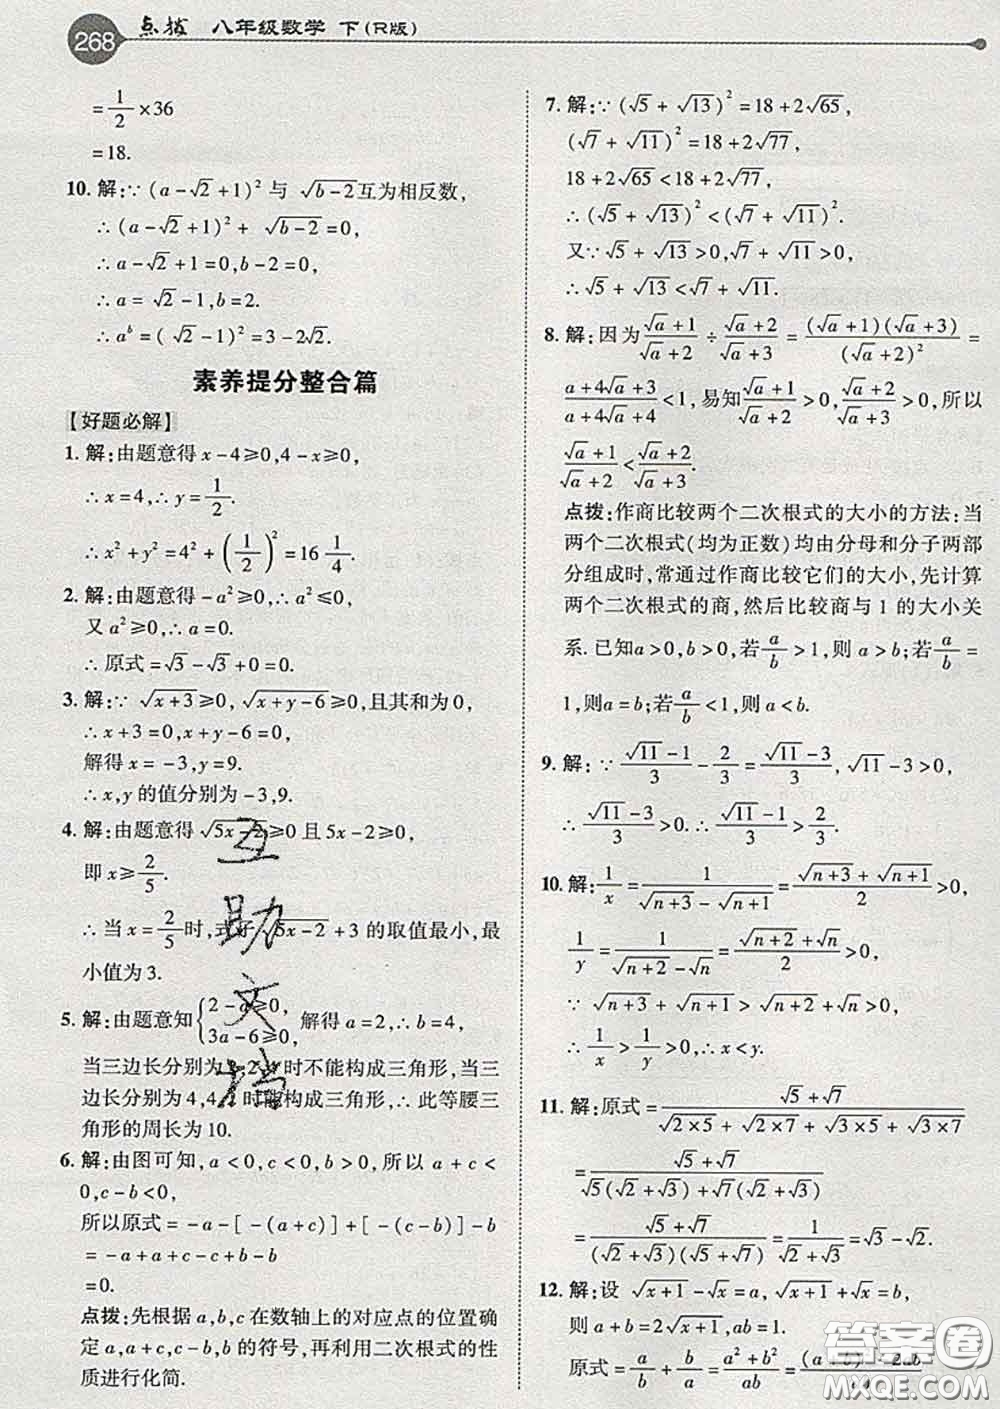 268 点拨 八年级数学 下(R版)
=1/2×36
=18.
10. 解:∵(a-√2+1)²与 √(b-2)互为相反数,
∴(a-√2+1)²+ √(b-2)=0,
∴a-√2+1=0,b-2=0,
∴a=√2-1,b=2.
∴a^b=(√2-1)²=3-2√2.
素养提分整合篇
【好题必解】
1. 解:由题意得x-4≥0,4-x≥0,
∴x=4,∴y=1/2.
∴x²+y²=4²+(1/2)²=16 1/4.
2. 解:由题意得-a²≥0,
又a²≥0,∴a=0.
∴原式=√3-√3+0=0.
3. 解:∵ √(x+3)≥0,√(x+y-6)≥0,且其和为0,
∴x+3=0,x+y-6=0,
解得x=-3,y=9.
∴x,y的值分别为-3,9.
4. 解:由题意得√(5x-2)≥0且5x-2≥0,
即x≥2/5.
∴当x=2/5时,式子√(5x-2)+3的取值最小,最
小值为3.
5. 解:由题意知{2-a≥0, 3a-6≥0, 解得a=2,∴b=4,
当三边长分别为 ,2, 时不能构成三角形,当三
边长分别为4,4,2时能构成三角形,∴此等腰三
角形的周长为10.
6. 解:由图可知,a<0,c<0,b>0,所以a+c<
0,c-b<0,
所以原式=-a-[-(a+c)]+[-(c-b)]-b
=-a+a+c-c+b-b
=0.
点拨:先根据a,b,c在数轴上的对应点的位置确
定a,b,c的符号,再利用二次根式的性
质进行化简.
互助文档
7. 解:∵(√5+√13)²=18+2√65,
(√7+√11)²=18+2√77,
18+2√65<18+2√77,
∴(√5+√13)²<(√7+√11)².
又∵√5+√13>0,√7+√11>0,
∴√5+√13<√7+√11.
8. 解:因为(√a+1)/(√a+2)÷(√a+2)/(√a+3)=(√a+1)(√a+3)/(√a+2)²=
(a+4√a+3)/(a+4√a+4)<1,易知(√a+1)/(√a+2)>0,(√a+2)/(√a+3)>0,所以
(√a+1)/(√a+2)<(√a+2)/(√a+3).
点拨:作商比较两个二次根式的大小的方法:当
两个二次根式(均为正数)均由分母和分子两部
分组成时,常通过作商比较它们的大小,先计算
两个二次根式的商,然后比较商与1的大小关
系.已知a>0,b>0,若a/b>1,则a>b;若a/b=
1,则a=b;若a/b<1,则a<b.
9. 解:∵(√11-1)/3-2/3=(√11-3)/3,√11-3>0,
∴(√11-3)/3>0.∴(√11-1)/3>2/3.
10. 解:1/x=1/(√(n+3)-√(n+1))=(√(n+3)+√(n+1))/2>0,
1/y=1/(√(n+2)-√n)=(√(n+2)+√n)/2>0,
∵ √(n+3)+√(n+1)>√(n+2)+√n,
∴1/x>1/y>0,∴x<y.
11. 解:原式=(√5+√7)/(√(2×5)+√(2×7)+√(3×5)+√(3×7))
=(√5+√7)/(√5(√2+√3)+√7(√2+√3))
=(√5+√7)/((√2+√3)(√5+√7))=1/(√2+√3)=√3-√2.
12. 解:设 √(x+1)-√x=a,√(x+1)+√x=b,
则a+b=2√(x+1),ab=1.
原式=a/b+b/a=(a²+b²)/ab=
答案圈
MXQE.COM